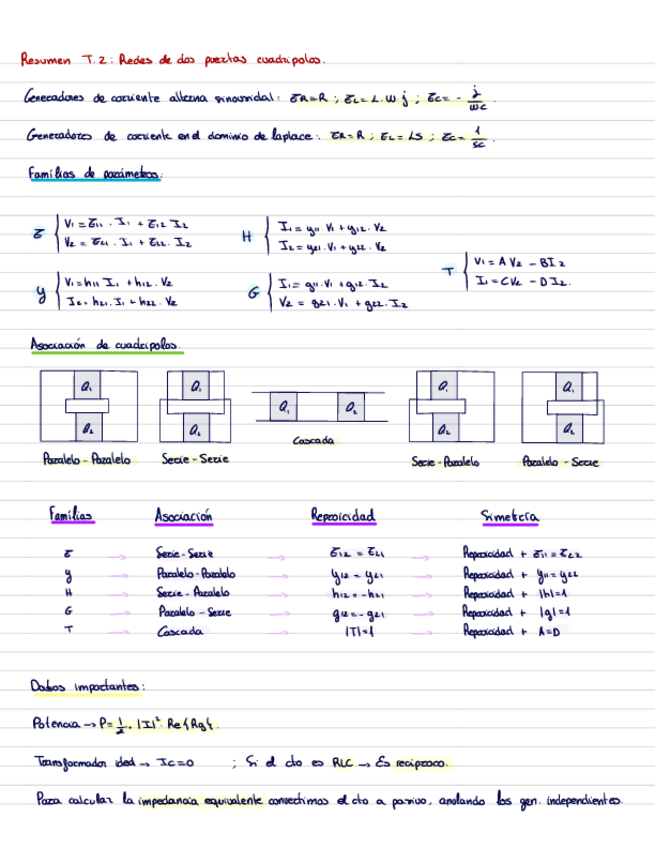 Resumen T.2: Redes de dos puertas cuadripolos.
Generadores de corriente alterna sinusoidal: ZR=R ; ZL= L.W j ; ZC= - j/WC.
Generadores de corriente en el dominio de laplace: ZR=R ; ZL= LS ; ZC= 1/SC.
Familias de parámetros:
Z { V1 = Z11 . I1 + Z12 I2
V2 = Z21 . I1 + Z22 . I2
H { I1 = y11 . V1 + y12 . V2
I2 = y21 . V1 + y22 . V2
T { V1 = A V2 - B I2
I1 = C V2 - D I2.
y { V1 = h11 I1 + h12 . V2
I2 = h21 . I1 + h22 . V2
G { I1 = g11 . V1 + g12 . I2
V2 = g21 . V1 + g22 . I2
Asociación de cuadripolos.
Q1 Q1 Q1 Q2 Q1 Q1
Q2 Q2 Q2 Q2
Paralelo - Paralelo Serie - Serie Cascada Serie - Paralelo Paralelo - Serie
Familias Asociación Reprocidad Simetría
Z → Serie - Serie → Z12 = Z21 → Reprocidad + Z11 = Z22
y → Paralelo - Paralelo → y12 = y21 → Reprocidad + y11 = y22
H → Serie - Paralelo → h12 = -h21 → Reprocidad + |h|=1
G → Paralelo - Serie → g12 = -g21 → Reprocidad + |g|=1
T → Cascada → |T|=1 → Reprocidad + A=D
Datos importantes:
Potencia → P= 1/2 . |I|² . Re{Rg}.
Transformador ideal → Ic=0 ; Si el cto es RLC → Es recíproco.
Para calcular la impedancia equivalente convertimos el cto a pasivo, anolando los gen. independientes.